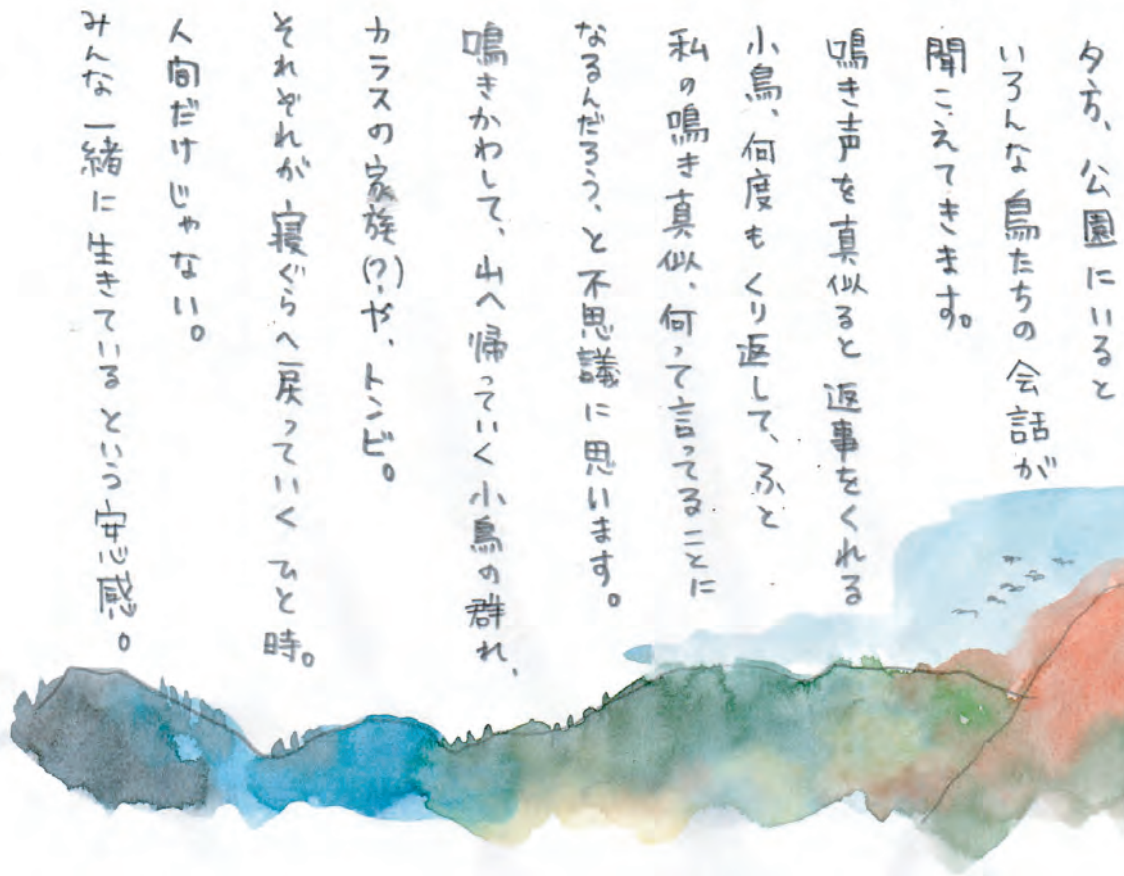 夕方、公園にいると
いろんな鳥たちの会話が
聞こえてきます。
鳴き声を真似ると返事をくれる
小鳥、何度もくり返して、ふと
私の鳴き真似、何って言ってることに
なるんだろう、と不思議に思います。
鳴きかわして、山へ帰っていく小鳥の群れ、
カラスの家族(?)や、トンビ。
それぞれが寝ぐらへ戻っていくひと時。
人間だけじゃない。
みんな一緒に生きているという安心感。